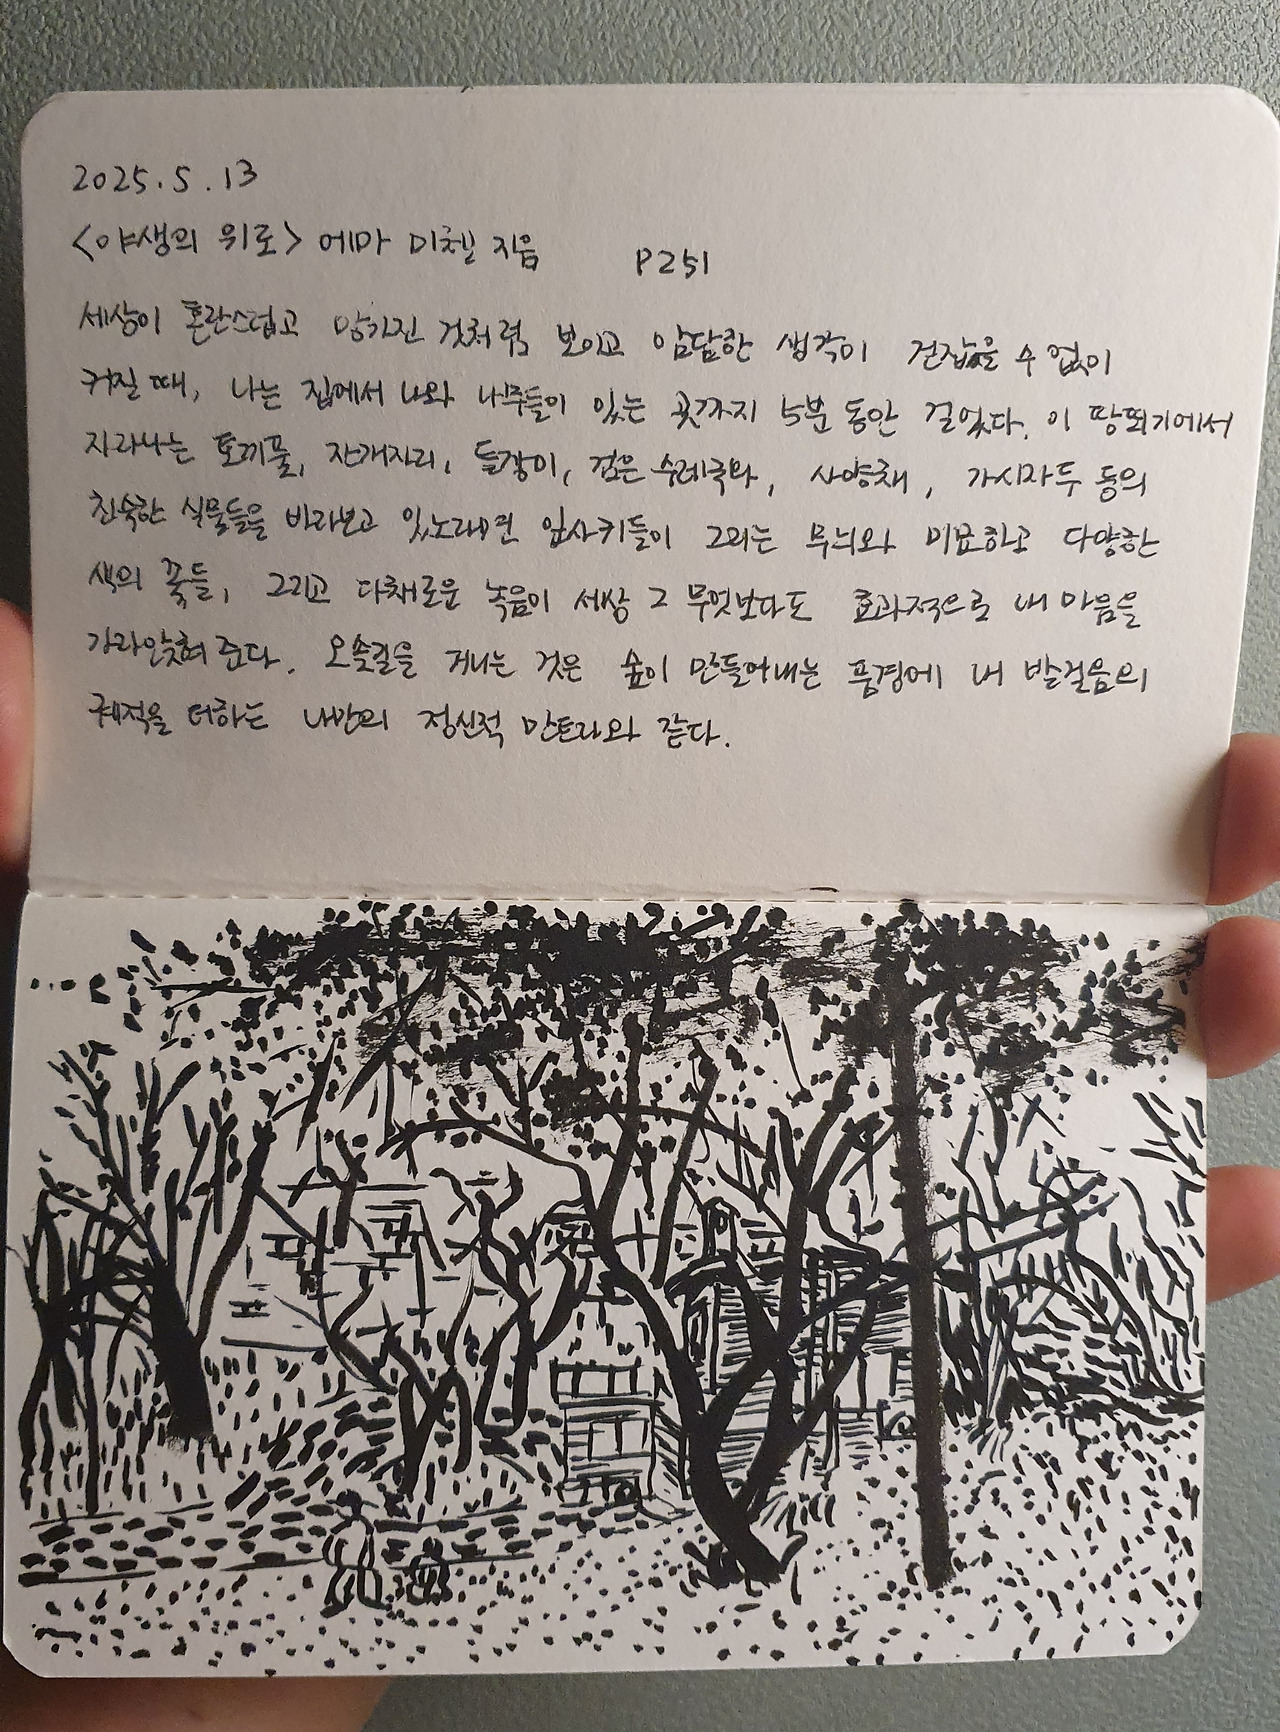 2025.5.13
<야생의 위로> 에마 미첼 지음 P251
세상이 혼란스럽고 망가진 것처럼 보이고 암담한 생각이 걷잡을 수 없이
커질 때, 나는 집에서 나와 나무들이 있는 곳까지 5분 동안 걸었다. 이 땅뙈기에서
자라나는 토끼풀, 자개자리, 들갈퀴, 검은 수레국화, 사양채, 가시자두 등의
친숙한 식물들을 바라보고 있노라면 잎사귀들이 그리는 무늬와 미묘하고 다양한
색의 꽃들, 그리고 다채로운 녹음이 세상 그 무엇보다도 효과적으로 내 마음을
가라앉혀 준다. 오솔길을 거니는 것은 숲이 만들어내는 풍경에 내 발걸음의
궤적을 더하는 나만의 정신적 만트라와 같다.